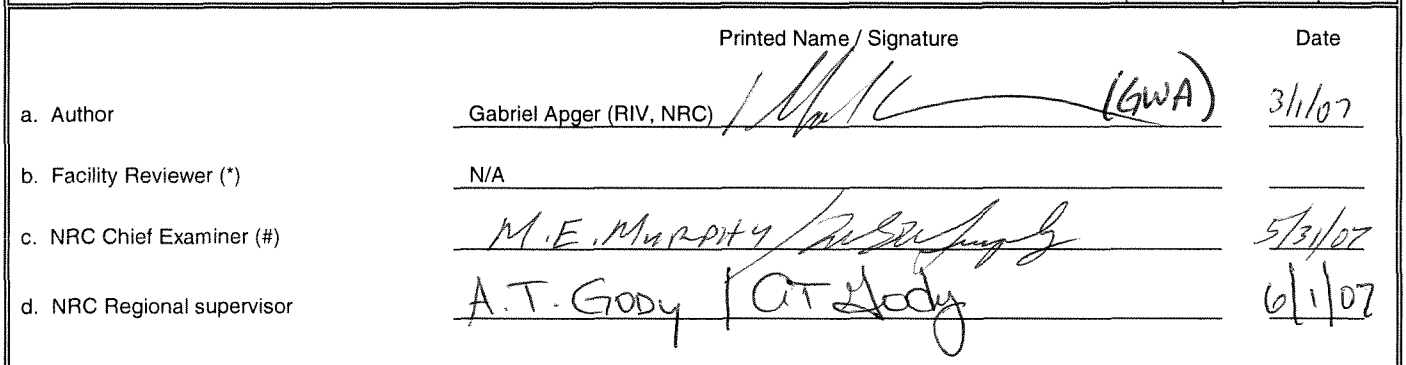 Printed Name / Signature Date
a. Author Gabriel Apger (RIV, NRC) / (GWA) 3/1/07
b. Facility Reviewer (*) N/A
c. NRC Chief Examiner (#) M.E. MURPHY / 5/31/07
d. NRC Regional supervisor A.T. GODY | AT Gody 6/1/07